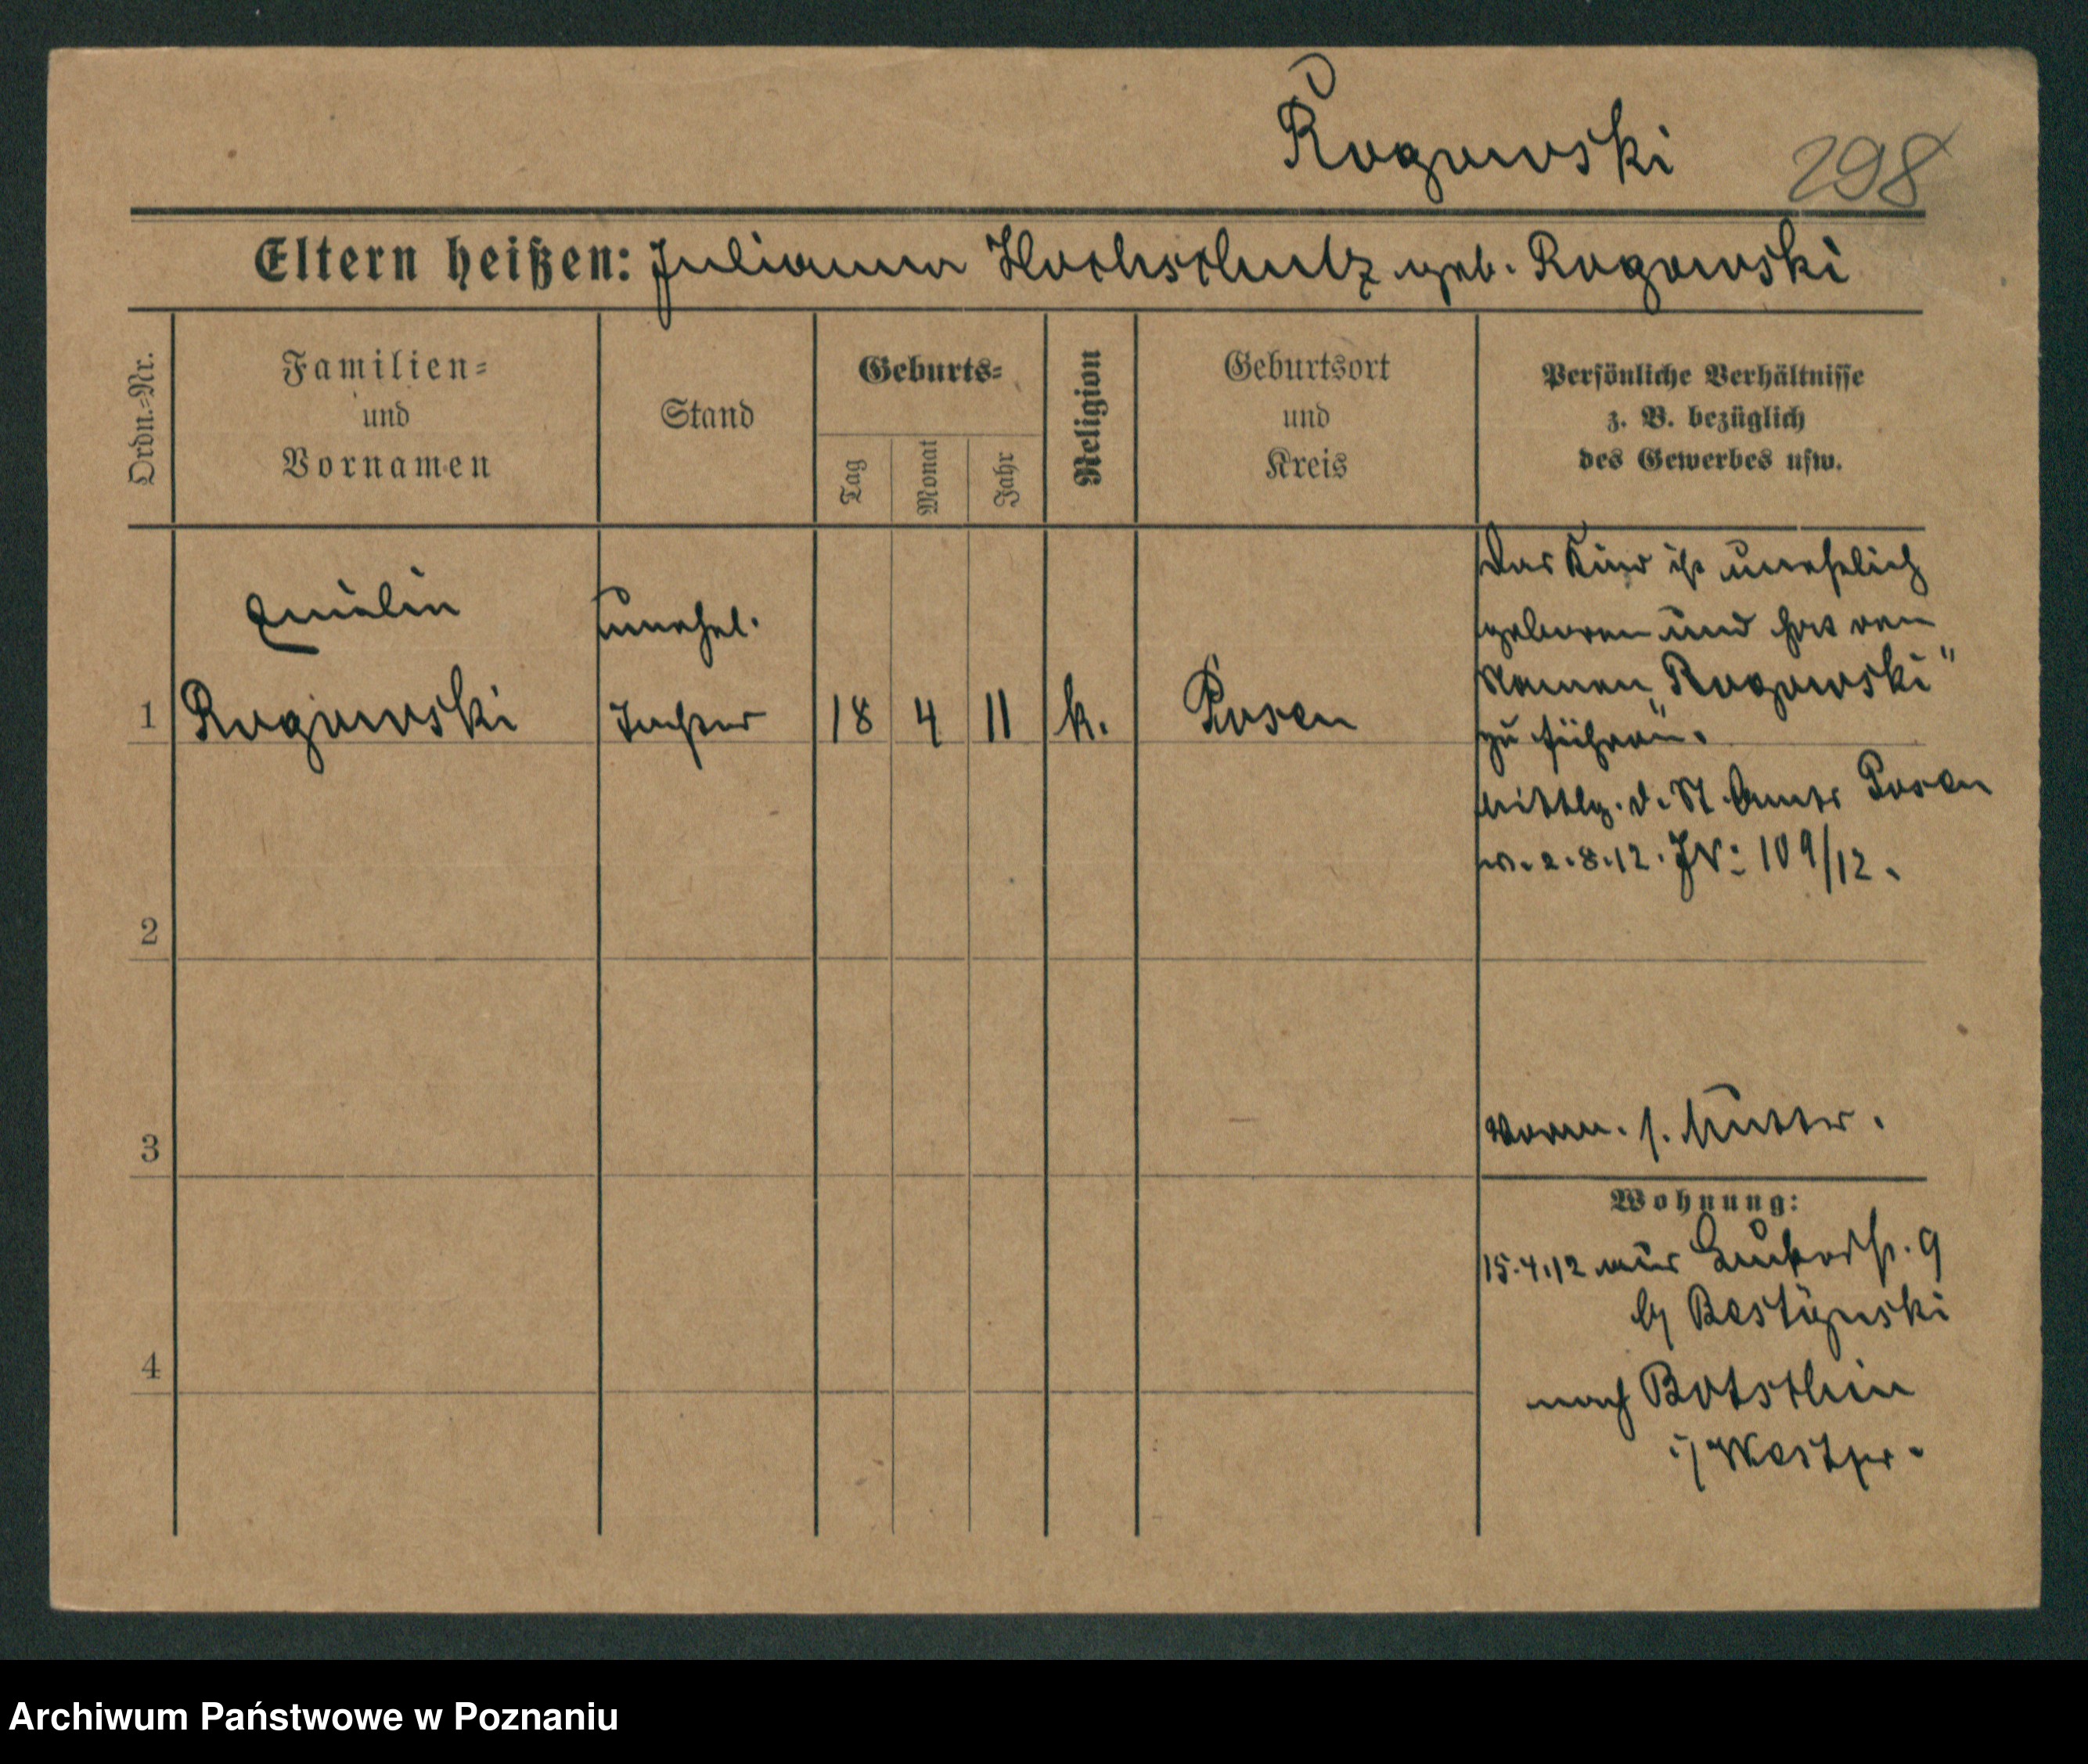 Rogowski 298
Eltern heißen: Julianna Hochschulz geb. Rogowski
Ordn.=Nr.
Familien=
und
Vornamen
Stand
Geburts=
Tag
Monat
Jahr
Religion
Geburtsort
und
Kreis
Persönliche Verhältnisse
z. B. bezüglich
des Gewerbes usw.
1
Rogowski
unehel.
Tochter
18 4 11 k. Posen
Das Kind ist unehelich
geboren und hat den
Namen „Rogowski"
zu führen.
Mittlg. d. St. Amts Posen
v. 2.8.12. JN: 109/12.
2
3
4
Vorm. s. Mutter.
Wohnung:
15.4.12 9
nach
i/ Westpr.
Archiwum Państwowe w Poznaniu